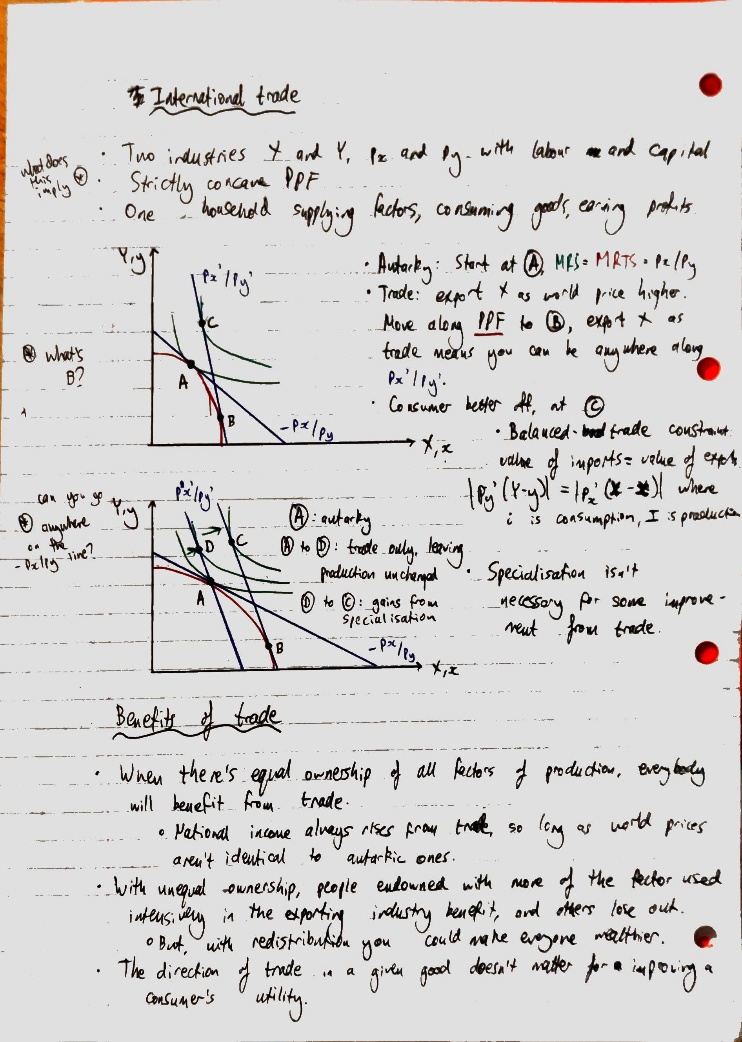 International trade
• Two industries X and Y, Px and Py. with labour and capital
What does this imply * • Strictly concave PPF
• One household supplying factors, consuming goods, earning profits
Y,y
Px'/Py'
C
A
B
-Px/Py
X,x
* What's
B?
• Autarky: Start at A, MRS = MRTS = Px/Py
• Trade: export X as world price higher.
Move along PPF to B, export X as
trade means you can be anywhere along
Px'/Py'.
• Consumer better off, at C
• Balanced trade constraint
value of imports = value of exports
|Py'(Y-y)| = |Px'(X-x)| where
i is consumption, I is production
can you go
* anywhere
on the
-Px/Py line?
Y,y
Px'/Py'
D
C
A
B
-Px/Py
X,x
A: autarky
A to D: trade only, leaving
production unchanged
D to C: gains from
specialisation
• Specialisation isn't
necessary for some improve-
ment from trade.
Benefits of trade
• When there's equal ownership of all factors of production, everybody
will benefit from trade.
◦ National income always rises from trade, so long as world prices
aren't identical to autarkic ones.
• With unequal ownership, people endowed with more of the factor used
intensively in the exporting industry benefit, and others lose out.
◦ But, with redistribution you could make everyone wealthier.
• The direction of trade in a given good doesn't matter for improving a
consumer's utility.